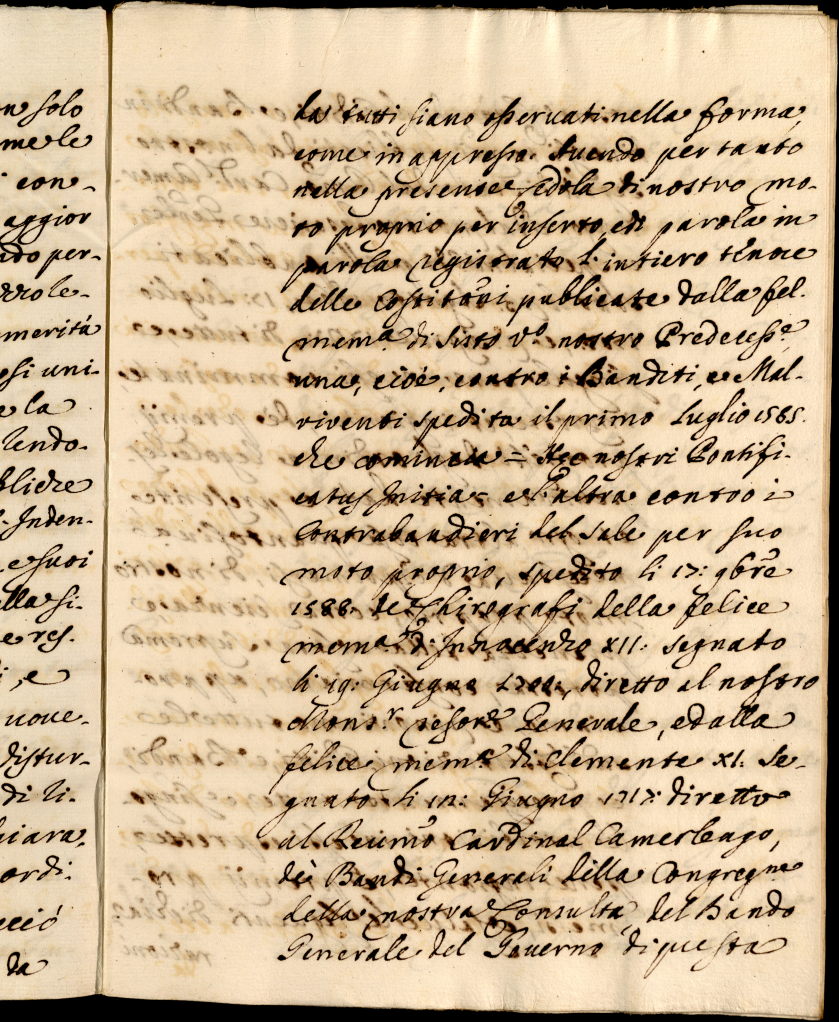 n solo
me le
con-
aggior
ndo per-
zzole-
merità
si uni-
e la
lendo-
bliche
Inden-
e suoi
lla si-
e res-
i, e
uove-
distur-
di li-
hiara-
ordi-
ceió
da
da tutti siano osservati nella forma,
come in appresso. Avendo per tanto
nella presente cedola di nostro mo-
to proprio per inserto, ed parola in
parola registrato l'intiero tenore
delle Costitõni publicate dalla fel.
mem.ª di Sisto V.º nostro Predecess.e
una, cioè, contro i Banditi, e Mal-
viventi spedita il primo Luglio 1585.
che comincia = Hoc nostri Pontifi-
catus Initia = e l'altra contro i
Contrabandieri del Sale per suo
moto proprio, spedito li 17: 9bre
1588. de Chirografi della felice
mem.ª d'Innocenzo XII: segnato
li 19: Giugno, diretto al nostro
Mons.r Tesor.e Generale, ed alla
felice mem.ª di Clemente XI. Se-
gnato li 12: Giugno 1717: diretto
al Rev̄mo Cardinal Camerlengo,
dei Bandi Generali della Congregne
della nostra Consulta, del Bando
Generale del Governo di questa